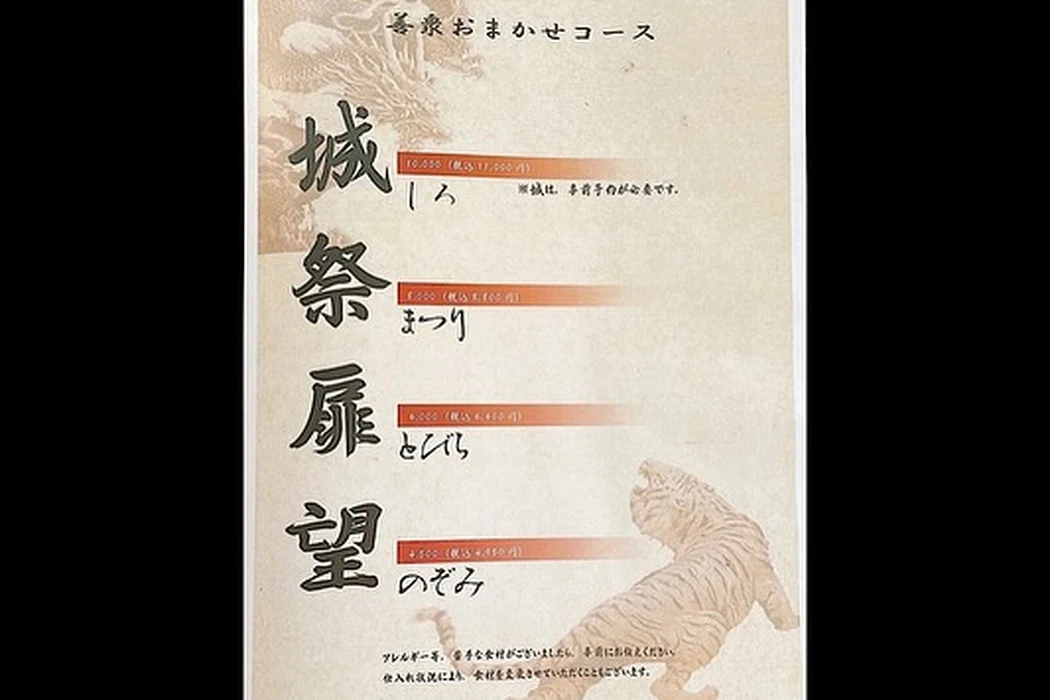 善衆おまかせコース
城
10,000（税込11,000円）
しろ
※城は、事前予約が必要です。
祭
8,000（税込8,800円）
まつり
扉
6,000（税込6,600円）
とびら
望
4,500（税込4,950円）
のぞみ
アレルギー等、苦手な食材がございましたら、事前にお伝えください。
仕入れ状況により、食材を変更させていただくこともございます。